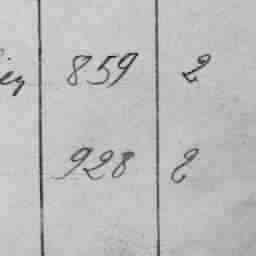 859 2
928 2